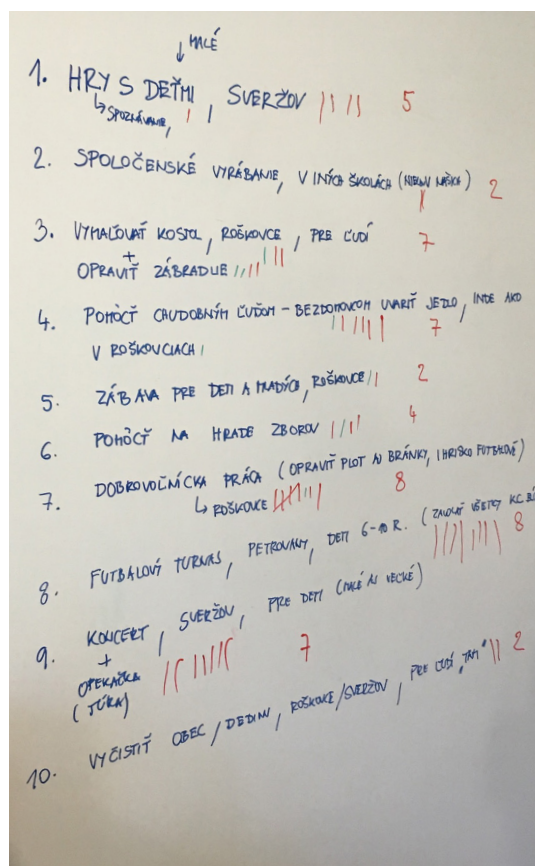 ↓ MALÉ
1. HRY S DEŤMI, SVERŽOV 5
↳ SPOZNÁVANIE,
2. SPOLOČENSKÉ VYRÁBANIE, V INÝCH ŠKOLÁCH ( NAŠICH) 2
3. VYMAĽOVAŤ KOSTOL, ROŠKOVCE, PRE ĽUDÍ 7
+
OPRAVIŤ ZÁBRADLIE
4. POMÔCŤ CHUDOBNÝM ĽUĎOM - BEZDOMOVCOM UVARIŤ JEDLO, INDE AKO
7
V ROŠKOVCIACH
5. ZÁBAVA PRE DETI A MLADÝCH, ROŠKOVCE 2
6. POMÔCŤ NA HRADE ZBOROV 4
7. DOBROVOĽNÍCKA PRÁCA (OPRAVIŤ PLOT AJ BRÁNKY, IHRISKO FUTBALOVÉ)
↳ ROŠKOVCE 8
8. FUTBALOVÝ TURNAJ, PETROVANY, DETI 6-10 R. (ZAVOLAŤ VŠETKY KC
8
9. KONCERT, SVERŽOV, PRE DETI (MALÉ AJ VEĽKÉ)
+
OPEKAČKA 7
(TÚRA)
10. VYČISTIŤ OBEC, DEDINU, ROŠKOVCE/SVERŽOV, PRE ĽUDÍ „TAM" 2